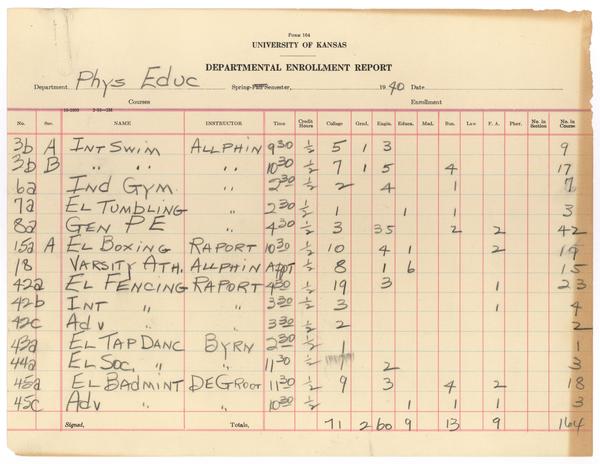 Form 104
UNIVERSITY OF KANSAS
DEPARTMENTAL ENROLLMENT REPORT
Department Phys Educ Spring-Fall Semester, 1940 Date
Courses Enrollment
No. Sec. NAME INSTRUCTOR Time Credit Hours College Grad. Engin. Educa. Med. Bus. Law F. A. Phar. No. in Section No. in Course
3b A Int Swim Allphin 9 30 ½ 5 1 3 9
3b B " " " 10 30 ½ 7 1 5 4 17
6a Ind Gym " 2 30 ½ 2 4 1 7
7a El Tumbling " 2 30 ½ 1 1 1 3
8a Gen PE " 4 30 ½ 3 35 2 2 42
15a A El Boxing Raport 10 30 ½ 10 4 1 2
18 Varsity Ath. Allphin Appt ½ 8 1 6 15
42a El Fencing Raport 4 30 ½ 19 3 1 23
42b Int " " 3 30 ½ 3 1 4
42c Adv " " 3 30 ½ 2 2
43a El Tap Danc Byrn 2 30 ½ 1 1
44a El Soc. " " 11 30 ½ 2 3
45a El Badmint DeGroot 11 30 ½ 9 3 4 2 18
45c Adv " " 10 30 ½ 1 1 1 3
Signed, Totals, 71 2 60 9 13 9 164